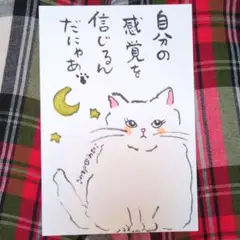 自分の
感覚を
信じるん
だにゃあ